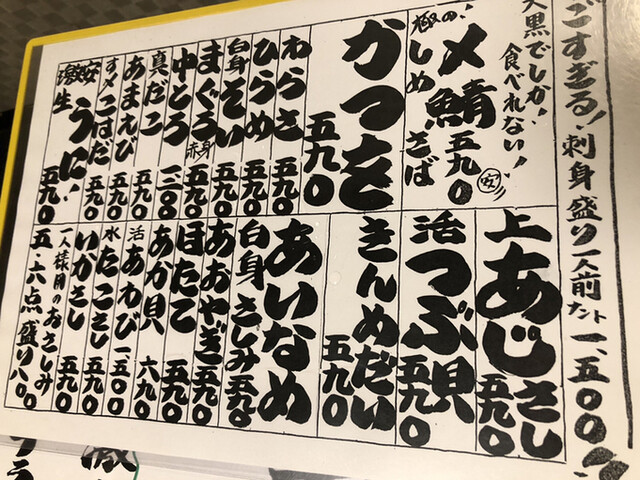 ごすぎる！刺身盛り一人前ナント一、五〇〇
大黒でしか！
食べれない！
極の！
〆鯖五九〇
しめさば
安
かつを
五九〇
わらさ
五九〇
ひらめ
五九〇
白身そい
五九〇
まぐろ赤身
五九〇
中とろ
一、二〇〇
真だこ
五九〇
あまえび
五九〇
すメこはだ
五九〇
激安
生うに！
五九〇
上あじさし
五九〇
活つぶ貝
五九〇
きんめだい
五九〇
あいなめ
五九〇
白身さしみ五九〇
あおやぎ五九〇
ほたて五九〇
あか貝六九〇
活あわび一、五〇〇
水たこさし五九〇
いかさし五九〇
一人様用のおさしみ
五・六点盛り八〇〇